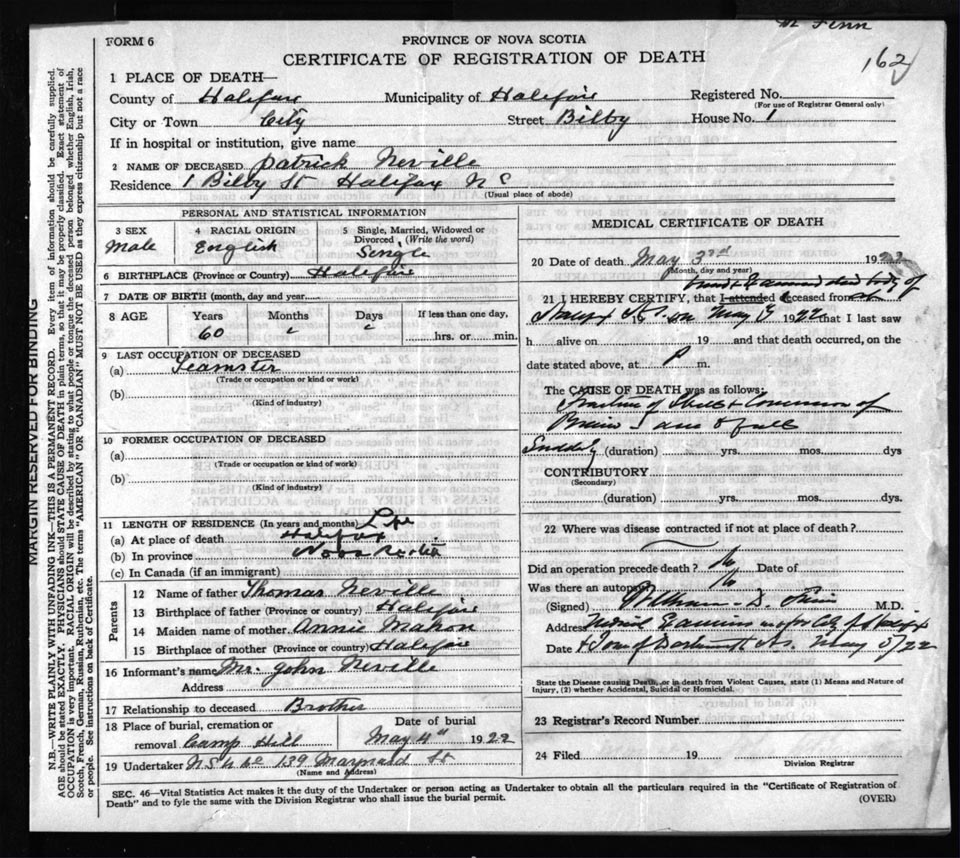 Finn
FORM 6
PROVINCE OF NOVA SCOTIA
CERTIFICATE OF REGISTRATION OF DEATH
162
1 PLACE OF DEATH—
County of Halifax Municipality of Halifax Registered No.
(For use of Registrar General only)
City or Town City Street Bilby House No. 1
If in hospital or institution, give name
2 NAME OF DECEASED Patrick Neville
Residence 1 Bilby St Halifax N S
(Usual place of abode)
PERSONAL AND STATISTICAL INFORMATION
3 SEX
Male
4 RACIAL ORIGIN
English
5 Single, Married, Widowed or Divorced (Write the word)
Single
6 BIRTHPLACE (Province or Country) Halifax
7 DATE OF BIRTH (month, day and year)
8 AGE Years Months Days If less than one day,
60 hrs. or min.
9 LAST OCCUPATION OF DECEASED
(a) Teamster
(Trade or occupation or kind or work)
(b)
(Kind of industry)
10 FORMER OCCUPATION OF DECEASED
(a)
(Trade or occupation or kind of work)
(b)
(Kind of industry)
11 LENGTH OF RESIDENCE (In years and months) Life
(a) At place of death Halifax
(b) In province Nova Scotia
(c) In Canada (if an immigrant)
Parents
12 Name of father Thomas Neville
13 Birthplace of father (Province or country) Halifax
14 Maiden name of mother Annie Mahon
15 Birthplace of mother (Province or Country) Halifax
16 Informant's name Mr. John Neville
Address
17 Relationship to deceased Brother
18 Place of burial, cremation or removal Camp Hill
Date of burial
May 4th 1922
19 Undertaker N S U Co 139 Maynard St
(Name and Address)
MEDICAL CERTIFICATE OF DEATH
20 Date of death May 3rd 1922
(Month, day and year)
dead body of
21 I HEREBY CERTIFY, that I attended deceased from
19 on May 3 1922 that I last saw
h alive on 19 and that death occurred, on the
date stated above, at P m.
The CAUSE OF DEATH was as follows:
Fracture of Skull & Concussion of
Brain
Suddenly (duration) yrs. mos. dys
CONTRIBUTORY
(Secondary)
(duration) yrs. mos. dys.
22 Where was disease contracted if not at place of death?
Did an operation precede death? No Date of
Was there an autopsy No
(Signed) D. Finn M.D.
Address Medical Examiner for City of Halifax
Date & Town of Dartmouth N.S. May 3/22
State the Disease causing Death, or in death from Violent Causes, state (1) Means and Nature of
Injury, (2) whether Accidental, Suicidal or Homicidal.
23 Registrar's Record Number
24 Filed 19
Division Registrar
SEC. 46—Vital Statistics Act makes it the duty of the Undertaker or person acting as Undertaker to obtain all the particulars required in the "Certificate of Registration of
Death" and to fyle the same with the Division Registrar who shall issue the burial permit.
(OVER)
MARGIN RESERVED FOR BINDING
N.B.—WRITE PLAINLY WITH UNFADING INK—THIS IS A PERMANENT RECORD. Every item of information should be carefully supplied.
AGE should be stated EXACTLY. PHYSICIANS should STATE CAUSE OF DEATH in plain terms, so that it may be properly classified. Exact statement of
OCCUPATION is very important. RACIAL ORIGIN will be described by stating to what people or tongue the deceased person belonged whether English, Irish,
Scotch, French, German, Russian, Ruthenian, etc. The terms "AMERICAN" OR "CANADIAN" MUST NOT BE USED as they express citizenship but not a race
or people. See instructions on back of Certificate.